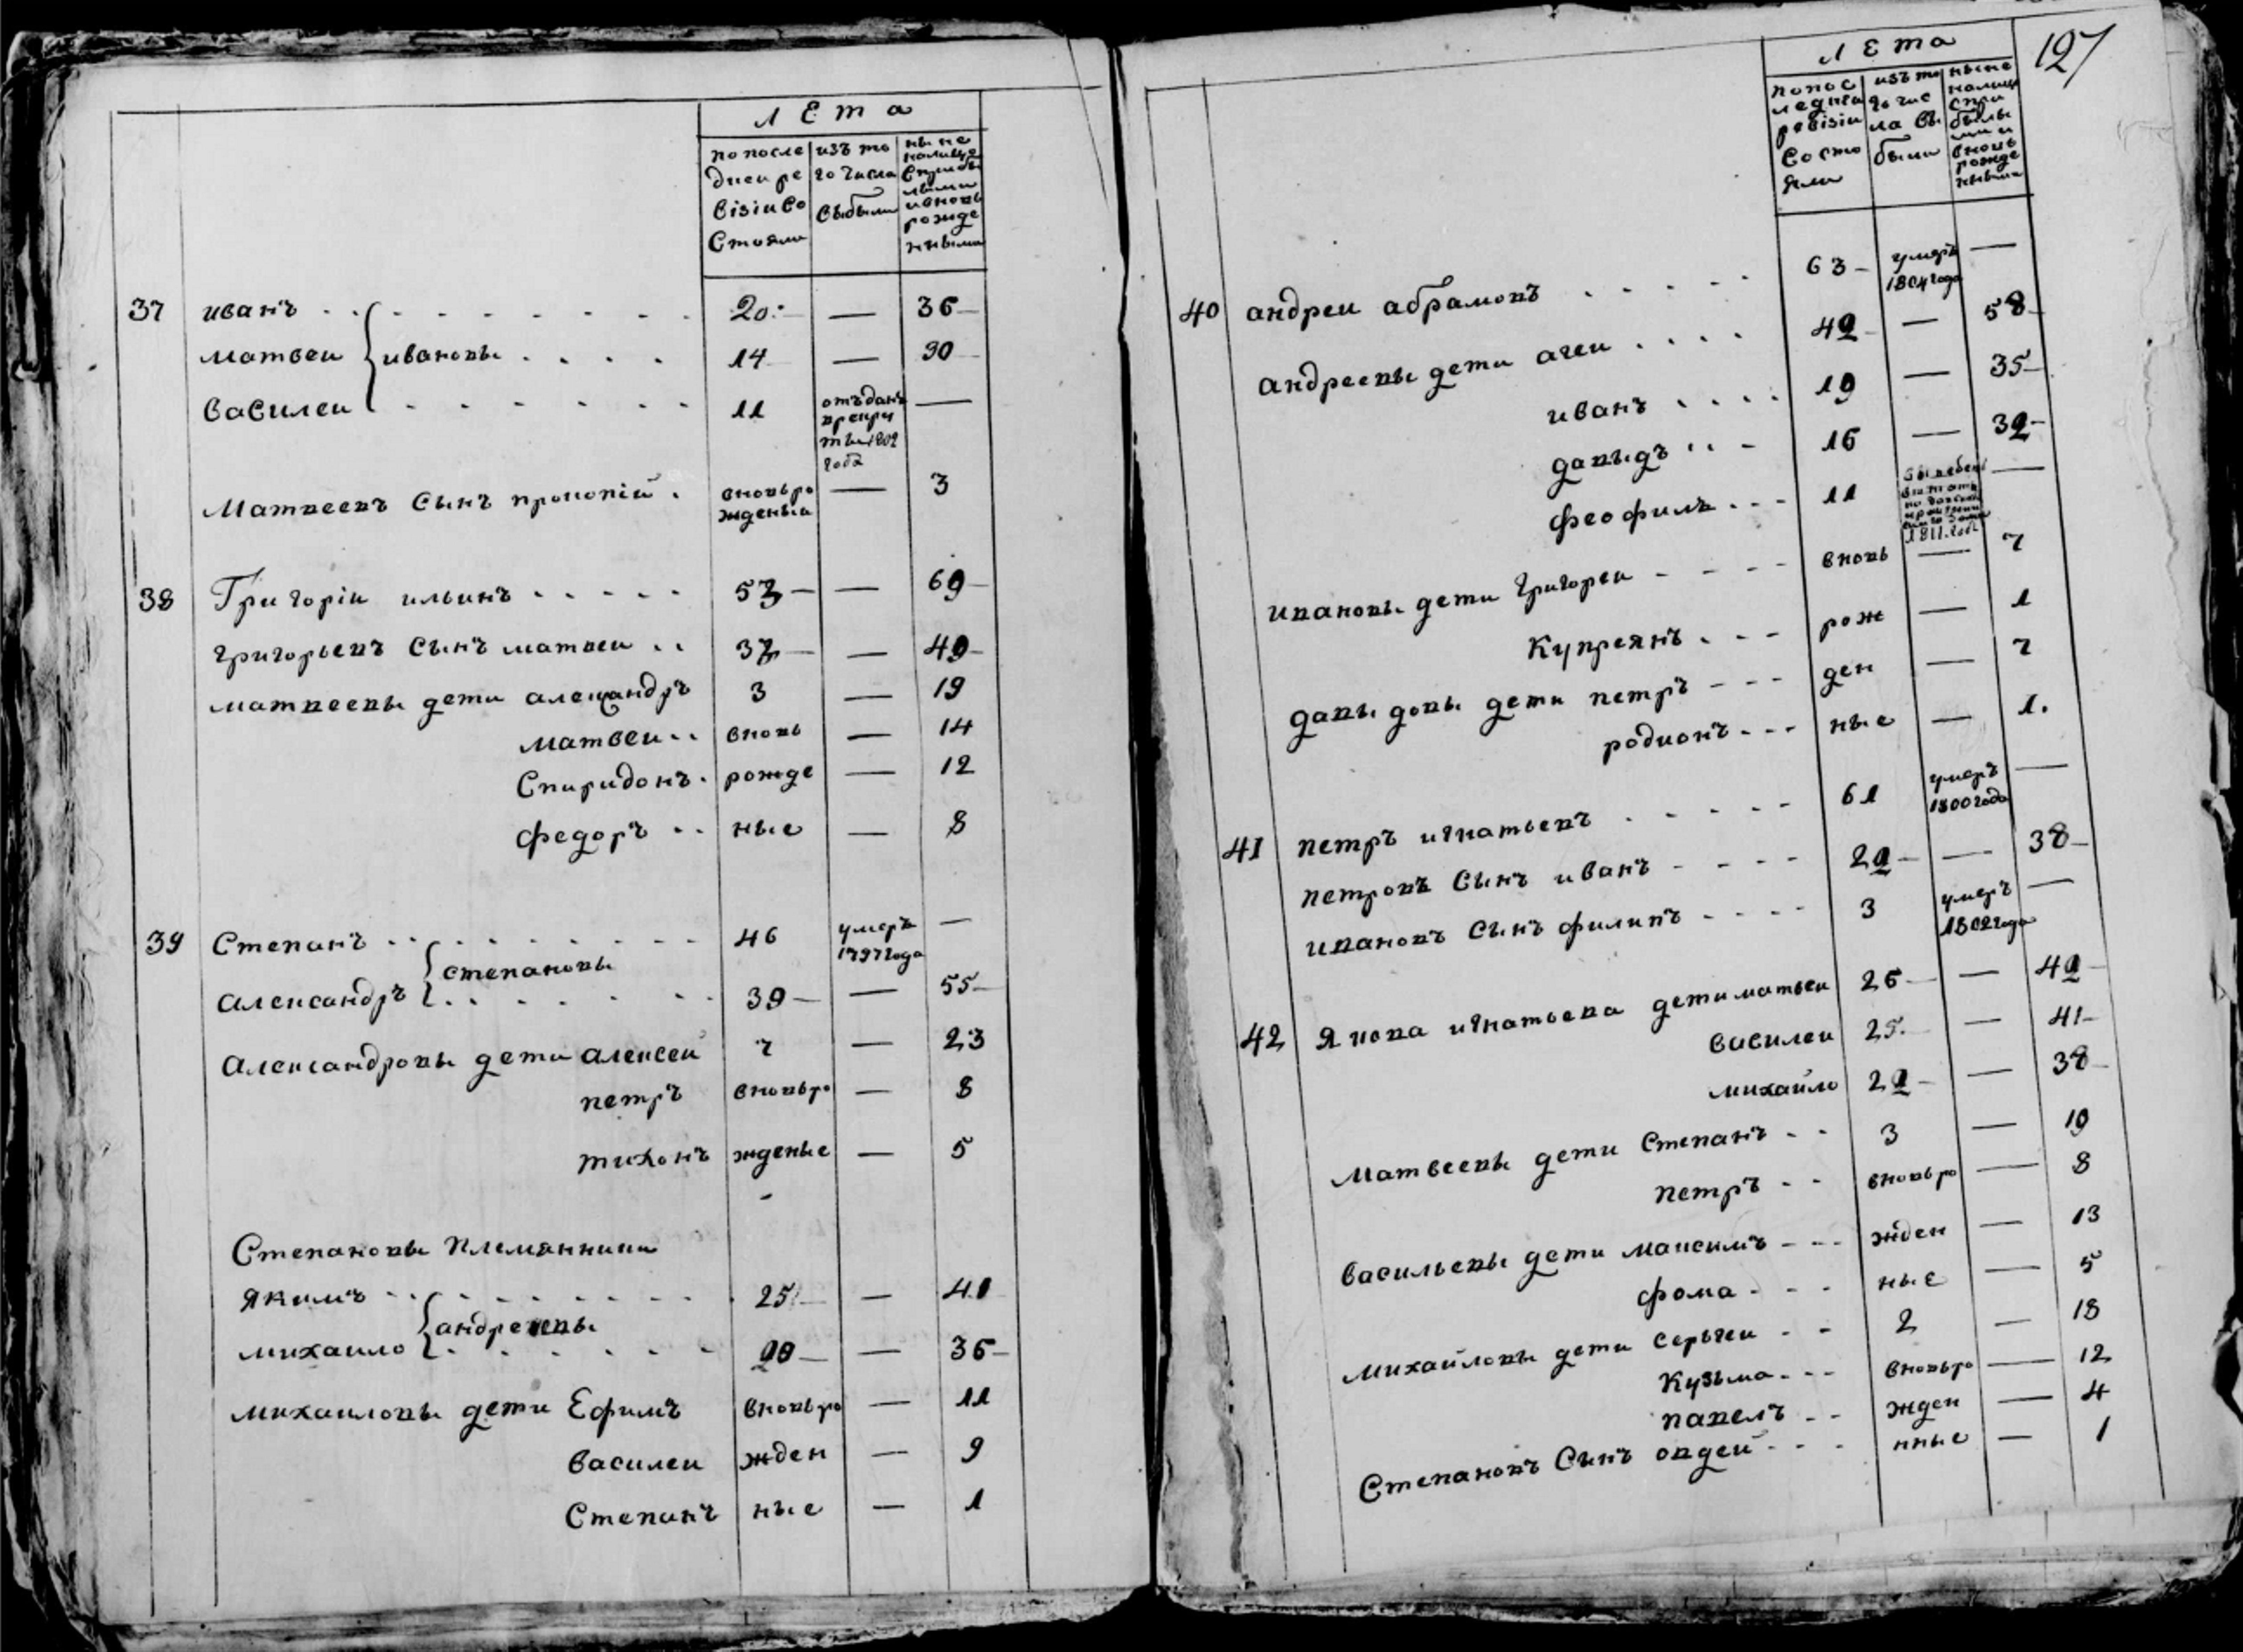 ЛЕта
по после
дней ре
візіи со
стояло
изъ то
го числа
выбыли
ныне
налицо
сприбы
лыми
ивновь
рожде
нными
37 иванъ 20 — 36
матвеи ивановы 14 — 30
василеи 11 отъданъ
врекру
ты 1802
года —
Матвеевъ сынъ прокопій вновь ро
жденыи — 3
38 Григоріи ильинъ 53 — 69
григорьевъ сынъ матвеи 33 — 49
матвеевы дети александръ 3 — 19
матвеи вновь — 14
Спиридонъ рожде — 12
федоръ ные — 8
39 Степанъ 46 умеръ
1797 года —
степановы
александръ 39 — 55
александровы дети алексеи 7 — 23
петръ вновь ро — 8
тихонъ жденые — 5
Степановы племянники
якимъ 25 — 41
андреевы
михаило 20 — 36
михаиловы дети Ефимъ вновь ро — 11
василеи жден — 9
Степанъ ные — 1
127
ЛЕта
по пос
ледней
ревізіи
состо
яли
изъ то
го чис
ла вы
были
ныне
налицо
спри
былы
ми и
вновь
рожде
нными
40 андреи абрамовъ 63 умеръ
1804 года —
андреевы дети агеи 42 — 58
иванъ 19 — 35
давыдъ 16 — 32
феофилъ 11
1811 года —
ивановы дети григореи вновь — 7
Купреянъ рож — 1
давыдовы дети петръ ден — 7
родионъ ные — 1
41 петръ игнатьевъ 61 умеръ
1800 года —
петровъ сынъ иванъ 22 — 38
ивановъ сынъ филипъ 3 умеръ
1802 года —
42 Якова игнатьева дети матвеи 26 — 42
василеи 25 — 41
михайло 22 — 38
Матвеевы дети Степанъ 3 — 19
петръ вновь ро — 8
васильевы дети максимъ жден — 13
фома ные — 5
михайловы дети сергеи 2 — 18
Кузьма вновь ро — 12
павелъ жден — 4
Степановъ Сынъ овдей нные — 1